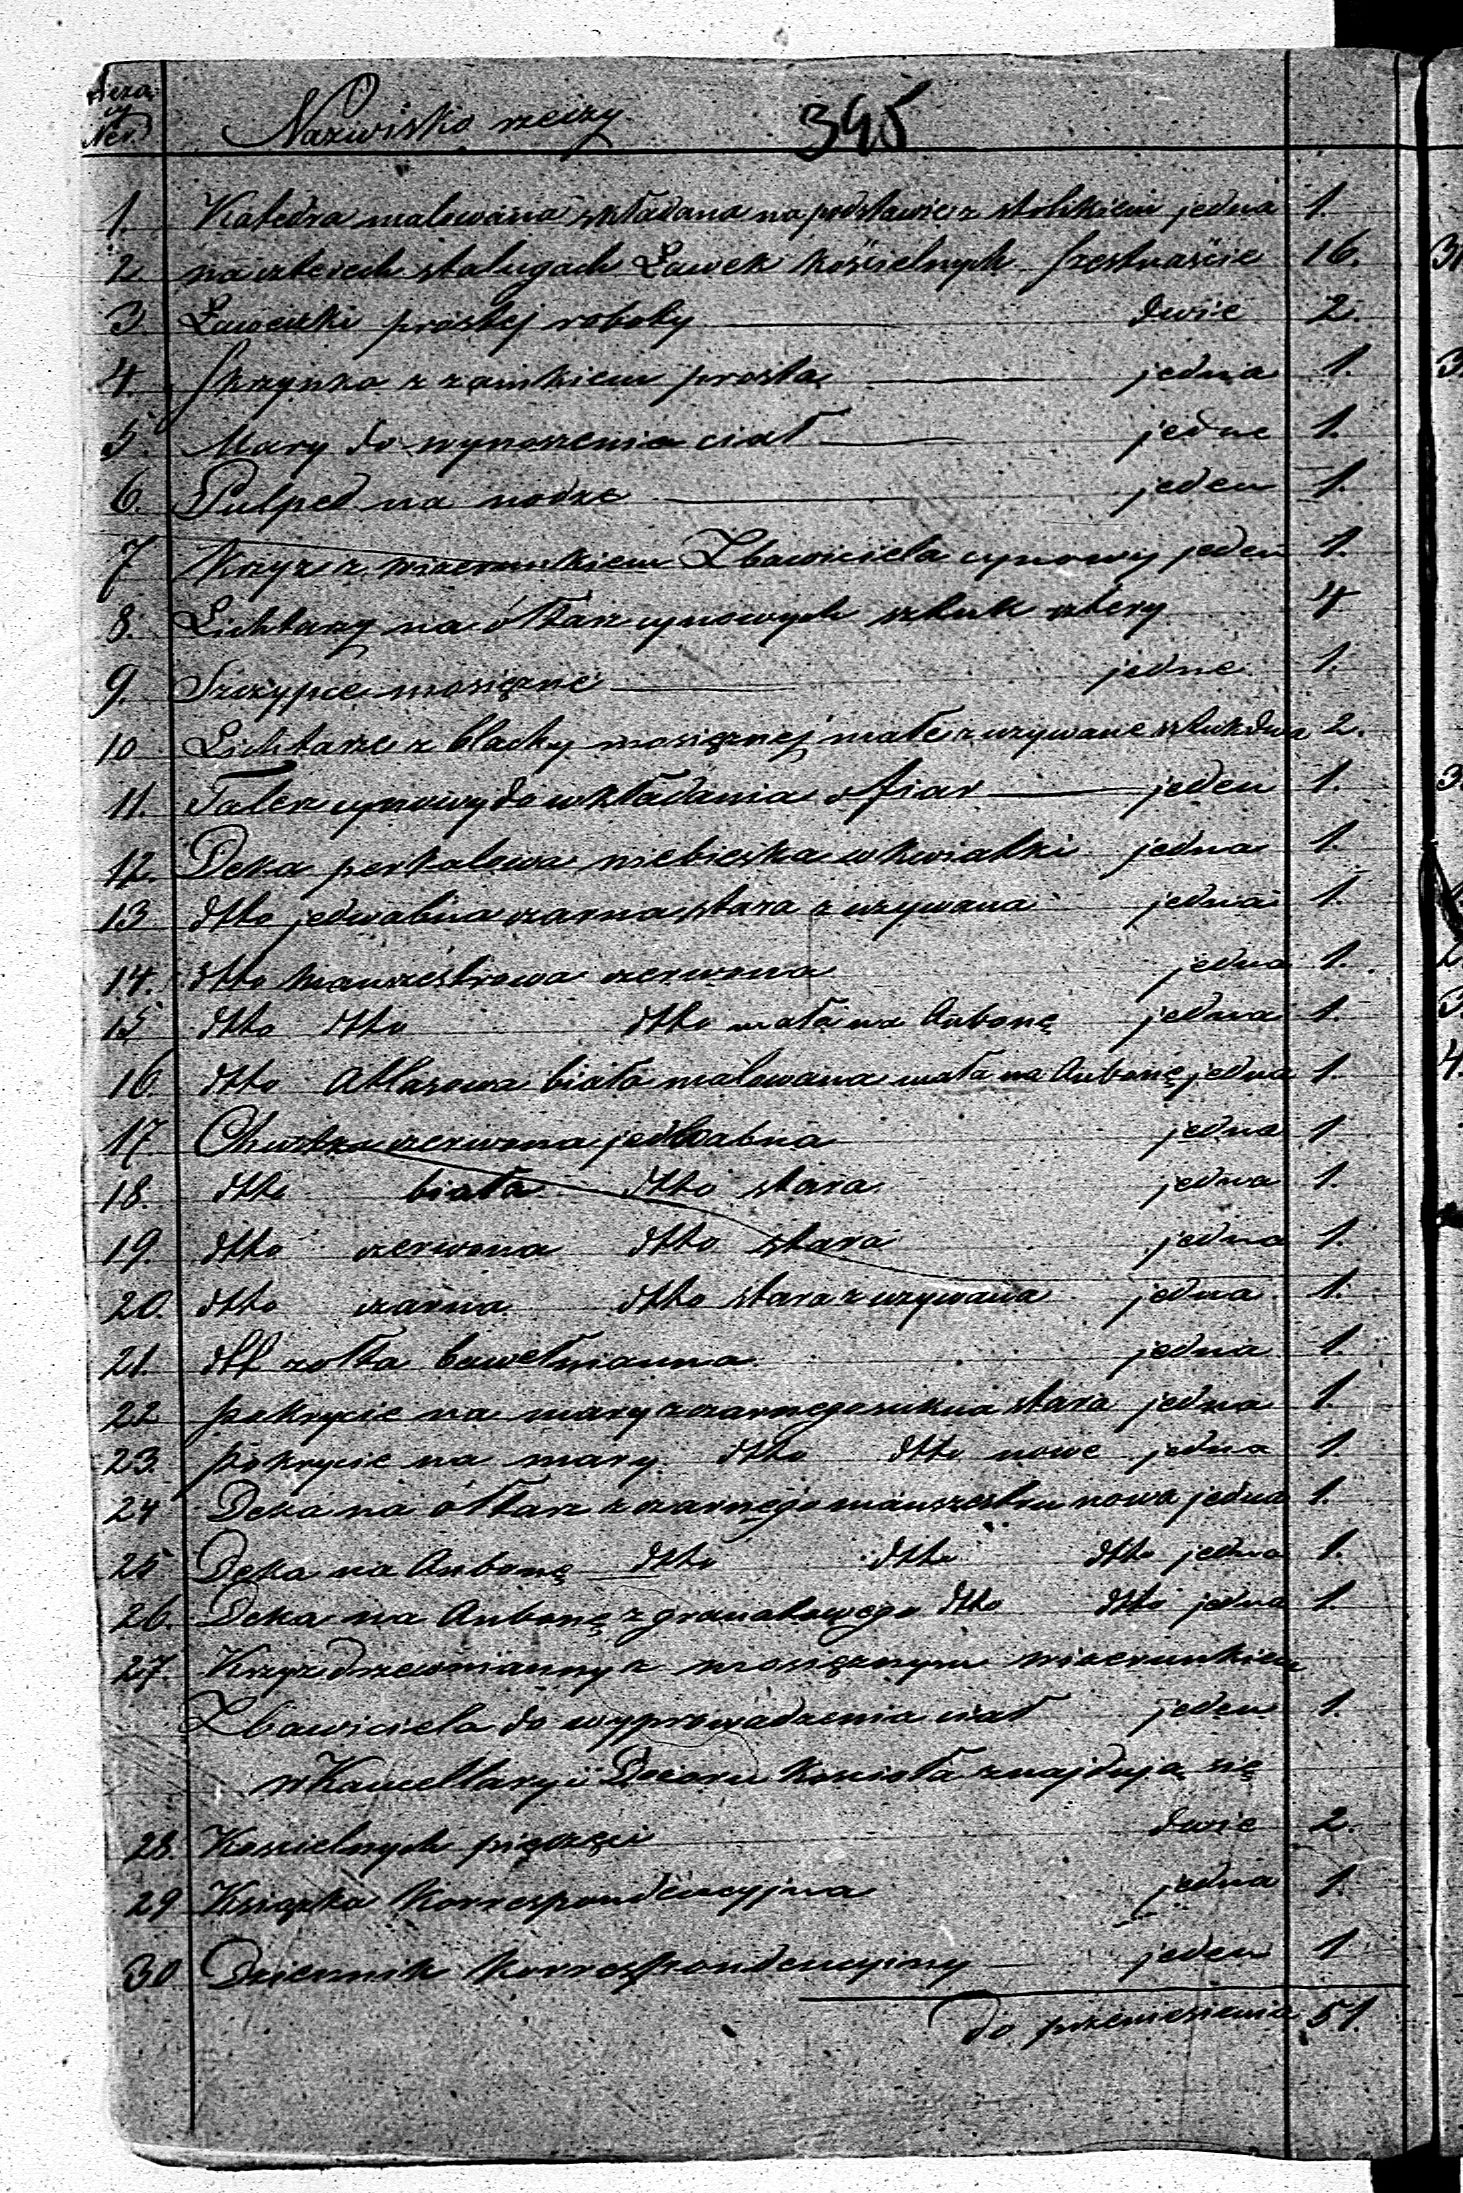 Nazwisko rzeczy 395
1. Katedra malowana składana na podstawie z stolikiem jedna 1.
2. na czterech stalugach Ławek kościelnych szesnaście 16.
3. Ławeczki prostej roboty dwie 2.
4. Skrzynka z zamkiem prosta jedna 1.
5. Mary do wynoszenia ciał jedne 1.
6. Pulped na nodze jeden 1.
7 Krzyż z wizerunkiem Zbawiciela cynowy jeden 1.
8. Lichtarzy na ółtarz cynowych sztuk cztery 4
9. Szczypce mosiężne jedne 1.
10 Lichtarze z blachy mosiężnej małe zużywane sztuk dwa 2.
11. Talerz cynowy do wkładania ofiar jeden 1.
12. Deka perkalowa niebieska w kwiatki jedna 1.
13 dtto jedwabna czarna stara zużywana jedna 1.
14. dtto manszestrowa czerwona jedna 1.
15 dtto dtto dtto mała na Ambonę jedna 1.
16. dtto Atłasowa biała malowana mała na Ambonę jedna 1.
17 Chustka czerwona jedwabna jedna 1
18. dtto biała dtto stara jedna 1.
19. dtto czerwona dtto stara jedna 1.
20. dtto czarna dtto stara zużywana jedna 1.
21. dtt zołta bawełnianna jedna 1
22 pokrycie na mary z czarnego sukna stara jedna 1.
23. pokrycie na mary dtto dtto nowe jedna 1
24 Deka na ółtarz z czarnego manszestru nowa jedna 1.
25 Deka na Ambonę dtto dtto dtto jedna 1.
26. Deka na Ambonę z granatowego dtto dtto jedna 1.
27. Krzyż drzewnianny z mosiężnym wizerunkiem
Zbawiciela do wyprowadzenia ciał jeden 1.
w Kancellaryi Dozoru Kościoła znajdują się
28. Koscielnych pieczęci dwie 2.
29 Ksiązka Korrespondencyjna jedna 1
30 Dziennik Korrespondencyiny jeden 1
do przeniesienia 51.